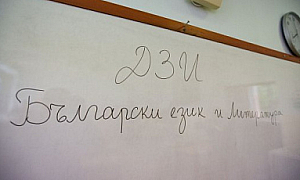 ДЗИ
Български език и литература